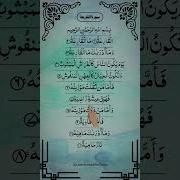 سورة القارعة
بِسْمِ اللَّهِ الرَّحْمَٰنِ الرَّحِيمِ
الْقَارِعَةُ مَا الْقَارِعَةُ
وَمَا أَدْرَاكَ مَا الْقَارِعَةُ
يَوْمَ يَكُونُ النَّاسُ كَالْفَرَاشِ الْمَبْثُوثِ
وَتَكُونُ الْجِبَالُ كَالْعِهْنِ الْمَنْفُوشِ
فَأَمَّا مَنْ ثَقُلَتْ مَوَازِينُهُ
فَهُوَ فِي عِيشَةٍ رَاضِيَةٍ
وَأَمَّا مَنْ خَفَّتْ مَوَازِينُهُ
فَأُمُّهُ هَاوِيَةٌ
وَمَا أَدْرَاكَ مَا هِيَهْ
نَارٌ حَامِيَةٌ